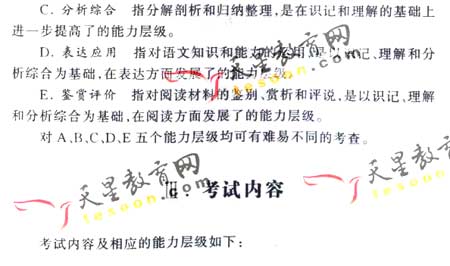 C. 分析综合 指分解剖析和归纳整理,是在识记和理解的基础上
进一步提高了的能力层级。
D. 表达应用 指对语文知识和能力的运用,是以识记、理解和分
析综合为基础,在表达方面发展了的能力层级。
E. 鉴赏评价 指对阅读材料的鉴别、赏析和评说,是以识记、理解
和分析综合为基础,在阅读方面发展了的能力层级。
对A、B、C、D、E五个能力层级均可有难易不同的考查。
天星教育网
tesoon.com
天星教育网
tesoon.com
天星教育网
tesoon.com
考试内容
考试内容及相应的能力层级如下: